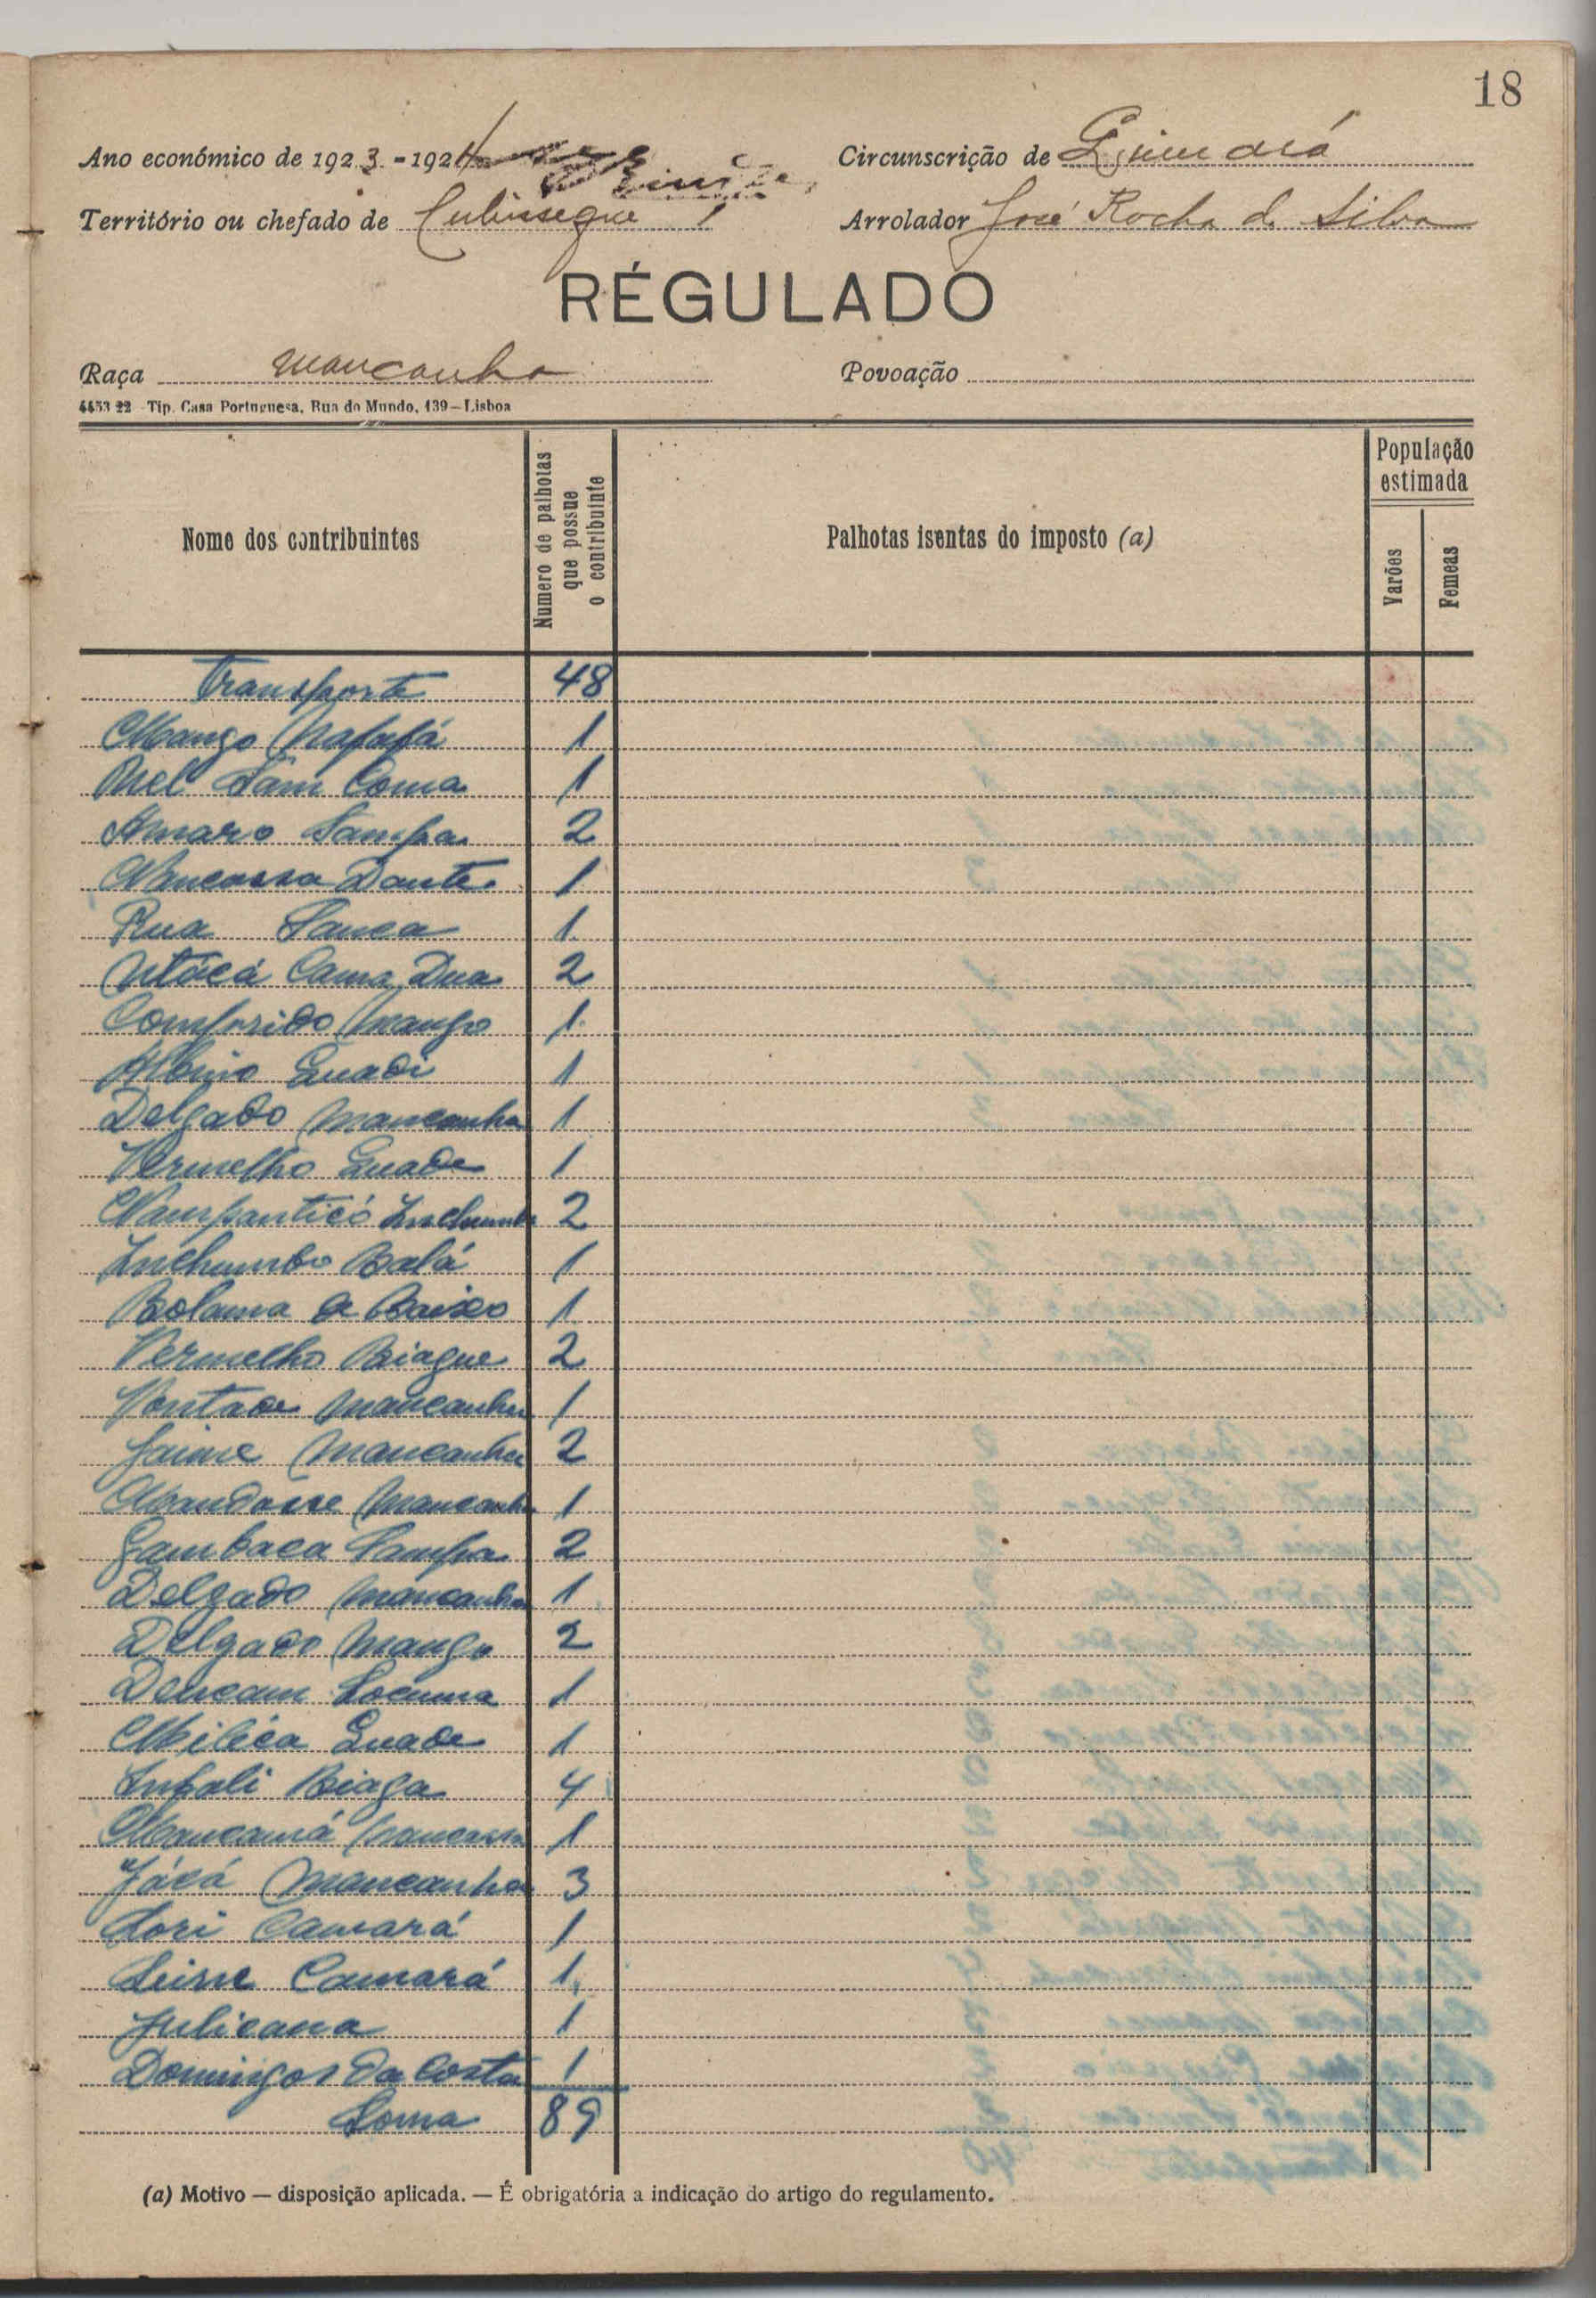 18
Ano económico de 1923-1924
Circunscrição de
Território ou chefado de Cubisseque
Arrolador José Rocha da Silva
RÉGULADO
Raça mancanha
Povoação
4453 22 Tip. Casa Portuguesa, Rua do Mundo, 139—Lisboa
Nome dos contribuintes
Numero de palhotas que possue o contribuinte
Palhotas isentas do imposto (a)
População estimada
Varões
Femeas
Transporte 48
Mango Nafafá 1
Nel Sam Coma 1
Amaro Sampa 2
Dante 1
Rua Sanca 1
Ntácá Cama Dua 2
Comprido Mango 1
Albino Quadi 1
Delgado Mancanha 1
Vermelho Quade 1
Nampanticó Inchumbo 2
Inchumbo Balá 1
Bolama de Baixo 1
Vermelho Biague 2
Vontade Mancanha 1
Jaime Mancanha 2
Mandasse Mancanha 1
Gambaca Sampa 2
Delgado Mancanha 1
Delgado Mango 2
Dencam Locuma 1
Milica Quade 1
Infali Biaga 4
Mancamá 1
Jácá Mancanha 3
Lori Camará 1
Camará 1
Julicana 1
Domingos da Costa 1
Soma 89
(a) Motivo — disposição aplicada. — É obrigatória a indicação do artigo do regulamento.